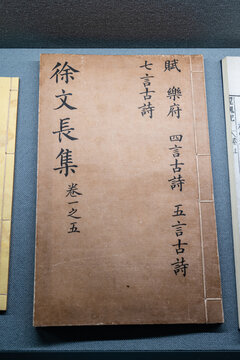 賦 樂府 四言古詩 五言古詩
七言古詩
徐文長集 卷一之五